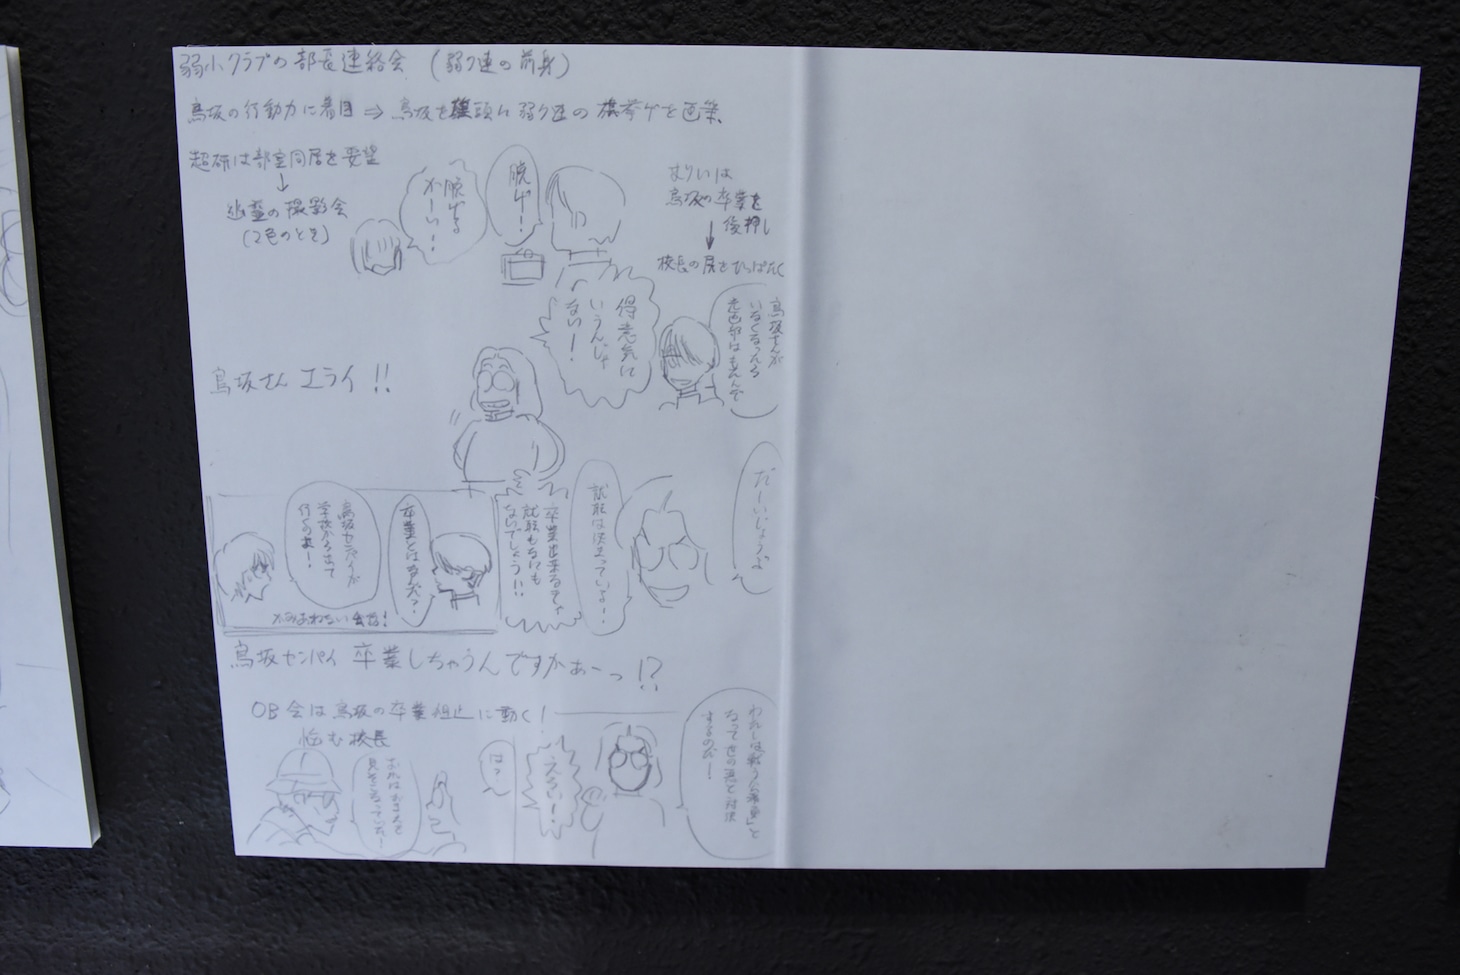 弱小クラブの部長連絡会(弱ク連の前身)
鳥坂の行動力に着目⇒鳥坂を旗頭に弱ク連の旗挙げを画策
超研は部室同居を要望
↓
の撮影会
(2色のとき)
脱げ!
脱げるかーい!
まりいは
鳥坂の卒業を
後押し
↓
校長の尻をひっぱたく
鳥坂さんが
いなくなったら
光画部はもえんで
得意気に
いうんじゃ
ない!
鳥坂さんエライ!!
だーいじょうぶ
就職は決まっている!
卒業出来るでしょ
就職もなにも
ないでしょう!!
卒業とはなんだ?
鳥坂センパイが
学校からさって
行くのよ!
かみあわない会話!
鳥坂センパイ卒業しちゃうんですかぁーっ!?
OB会は鳥坂の卒業阻止に動く!
悩む校長
われらは戦う「光画」と
なって世の悪と対決
するのだ!
えらい!
はっ
おれはおまえを
見そこなっていた!